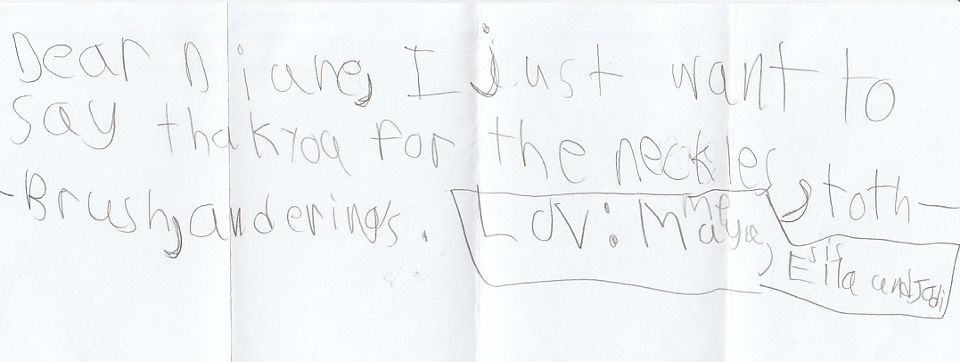 Dear Diane, I just want to
say thakyou for the neckles, toth-
-Brush, and erings.
LOV: Me Maya,
sis Ella and Jodi